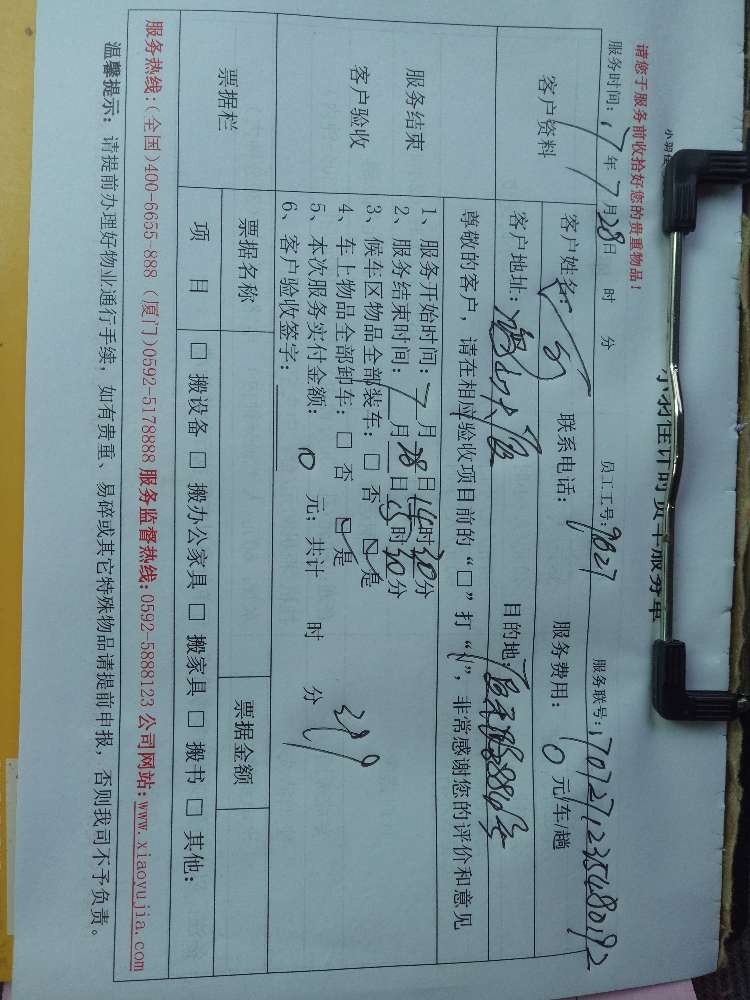 小羽佳计时货车服务单
请您于服务前收拾好您的贵重物品！
服务时间：17年7月28日 时 分 员工工号：9827 服务联号：
客户资料
客户姓名： 联系电话： 服务费用：0元/车/趟
客户地址： 目的地：
尊敬的客户，请在相应验收项目前的“□”打“√”，非常感谢您的评价和意见
服务结束
客户验收
1、服务开始时间：7月28日14时30分
2、服务结束时间：7月28日15时30分
3、候车区物品全部装车：□ 否 ☑ 是
4、车上物品全部卸车：□ 否 ☑ 是
5、本次服务实付金额：10元；共计 时 分
6、客户验收签字：
票据栏
票据名称 票据金额
项 目 □ 搬设备 □ 搬办公家具 □ 搬家具 □ 搬书 □ 其他：
服务热线：(全国)400-6655-888 (厦门)0592-5178888 服务监督热线：0592-5888123 公司网站：www.xiaoyujia.com
温馨提示：请提前办理好物业通行手续，如有贵重、易碎或其它特殊物品请提前申报，否则我司不予负责。